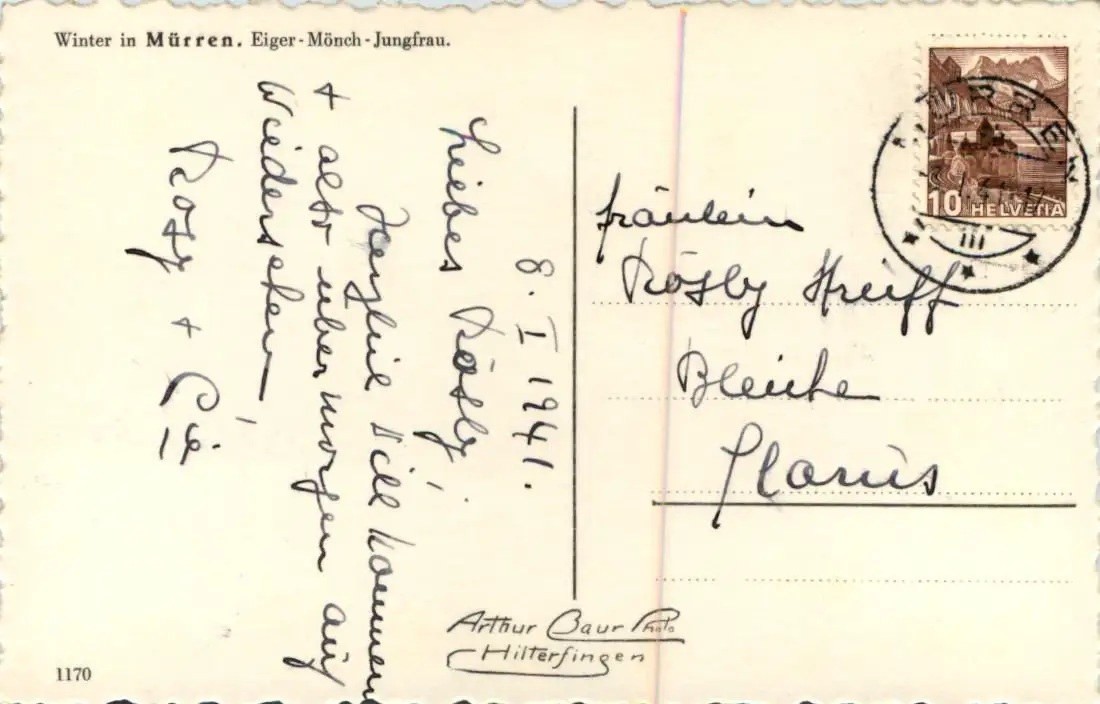 Winter in Mürren. Eiger-Mönch-Jungfrau.
8. I 1941.
Liebes Rösly!
Herzlich Willkommen
+ also übermorgen auf
Wiedersehen
Rosy +
Fräulein
Rösly Streiff
Bleiche
Glarus
MÜRREN
10 HELVETIA
Arthur Baur Photo
Hilterfingen
1170